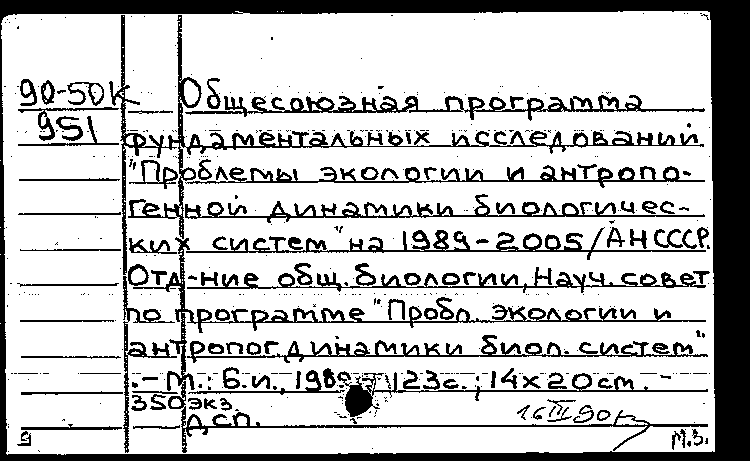 90-50К Общесоюзная программа
951 фундаментальных исследований
"Проблемы экологии и антропо-
генной динамики биологичес-
ких систем" на 1989-2005/АН СССР.
Отд-ние общ. биологии, Науч. совет
по программе "Пробл. экологии и
антропог. динамики биол. систем"
.- М.: Б.и., 1989.- 123с.; 14х20см. -
350 экз.
ДСП.
16 III 90
9
М.З.